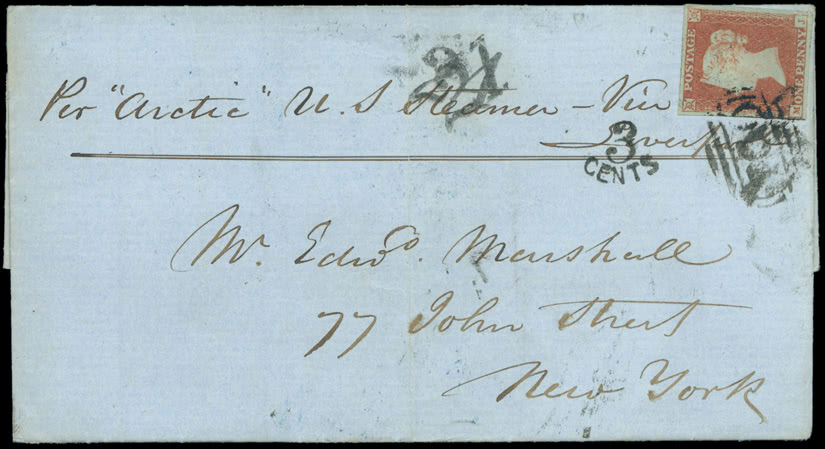 POSTAGE
M ONE PENNY J
Per "Arctic" U. S Steamer - Via
Liverpool
3
CENTS
Mr. Edwd. Marshall
77 John Street
New York